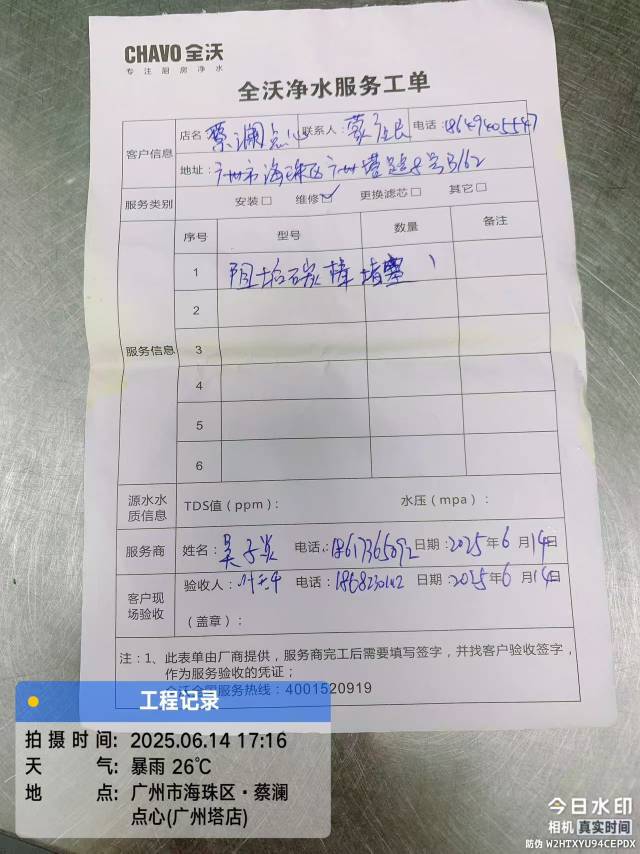 CHAVO 全沃
专注厨房净水
全沃净水服务工单
客户信息
店名 蔡澜点心 联系人: 电话: 18649405547
地址: 广州市海珠区广州塔
服务类别 安装□ 维修☑ 更换滤芯□ 其它□
服务信息
序号 型号 数量 备注
1 阻垢碳棒堵塞 1
2
3
4
5
6
源水水质信息 TDS值(ppm): 水压(mpa):
服务商 姓名: 吴子 电话: 日期: 2025年6月14日
客户现场验收 验收人: 电话: 日期: 2025年6月14日
(盖章):
注:1、此表单由厂商提供,服务商完工后需要填写签字,并找客户验收签字,
作为服务验收的凭证;
服务热线:4001520919
工程记录
拍摄时间: 2025.06.14 17:16
天气: 暴雨 26℃
地点: 广州市海珠区·蔡澜
点心(广州塔店)
今日水印
相机 真实时间
防伪 W2HTXYU94CEPDX